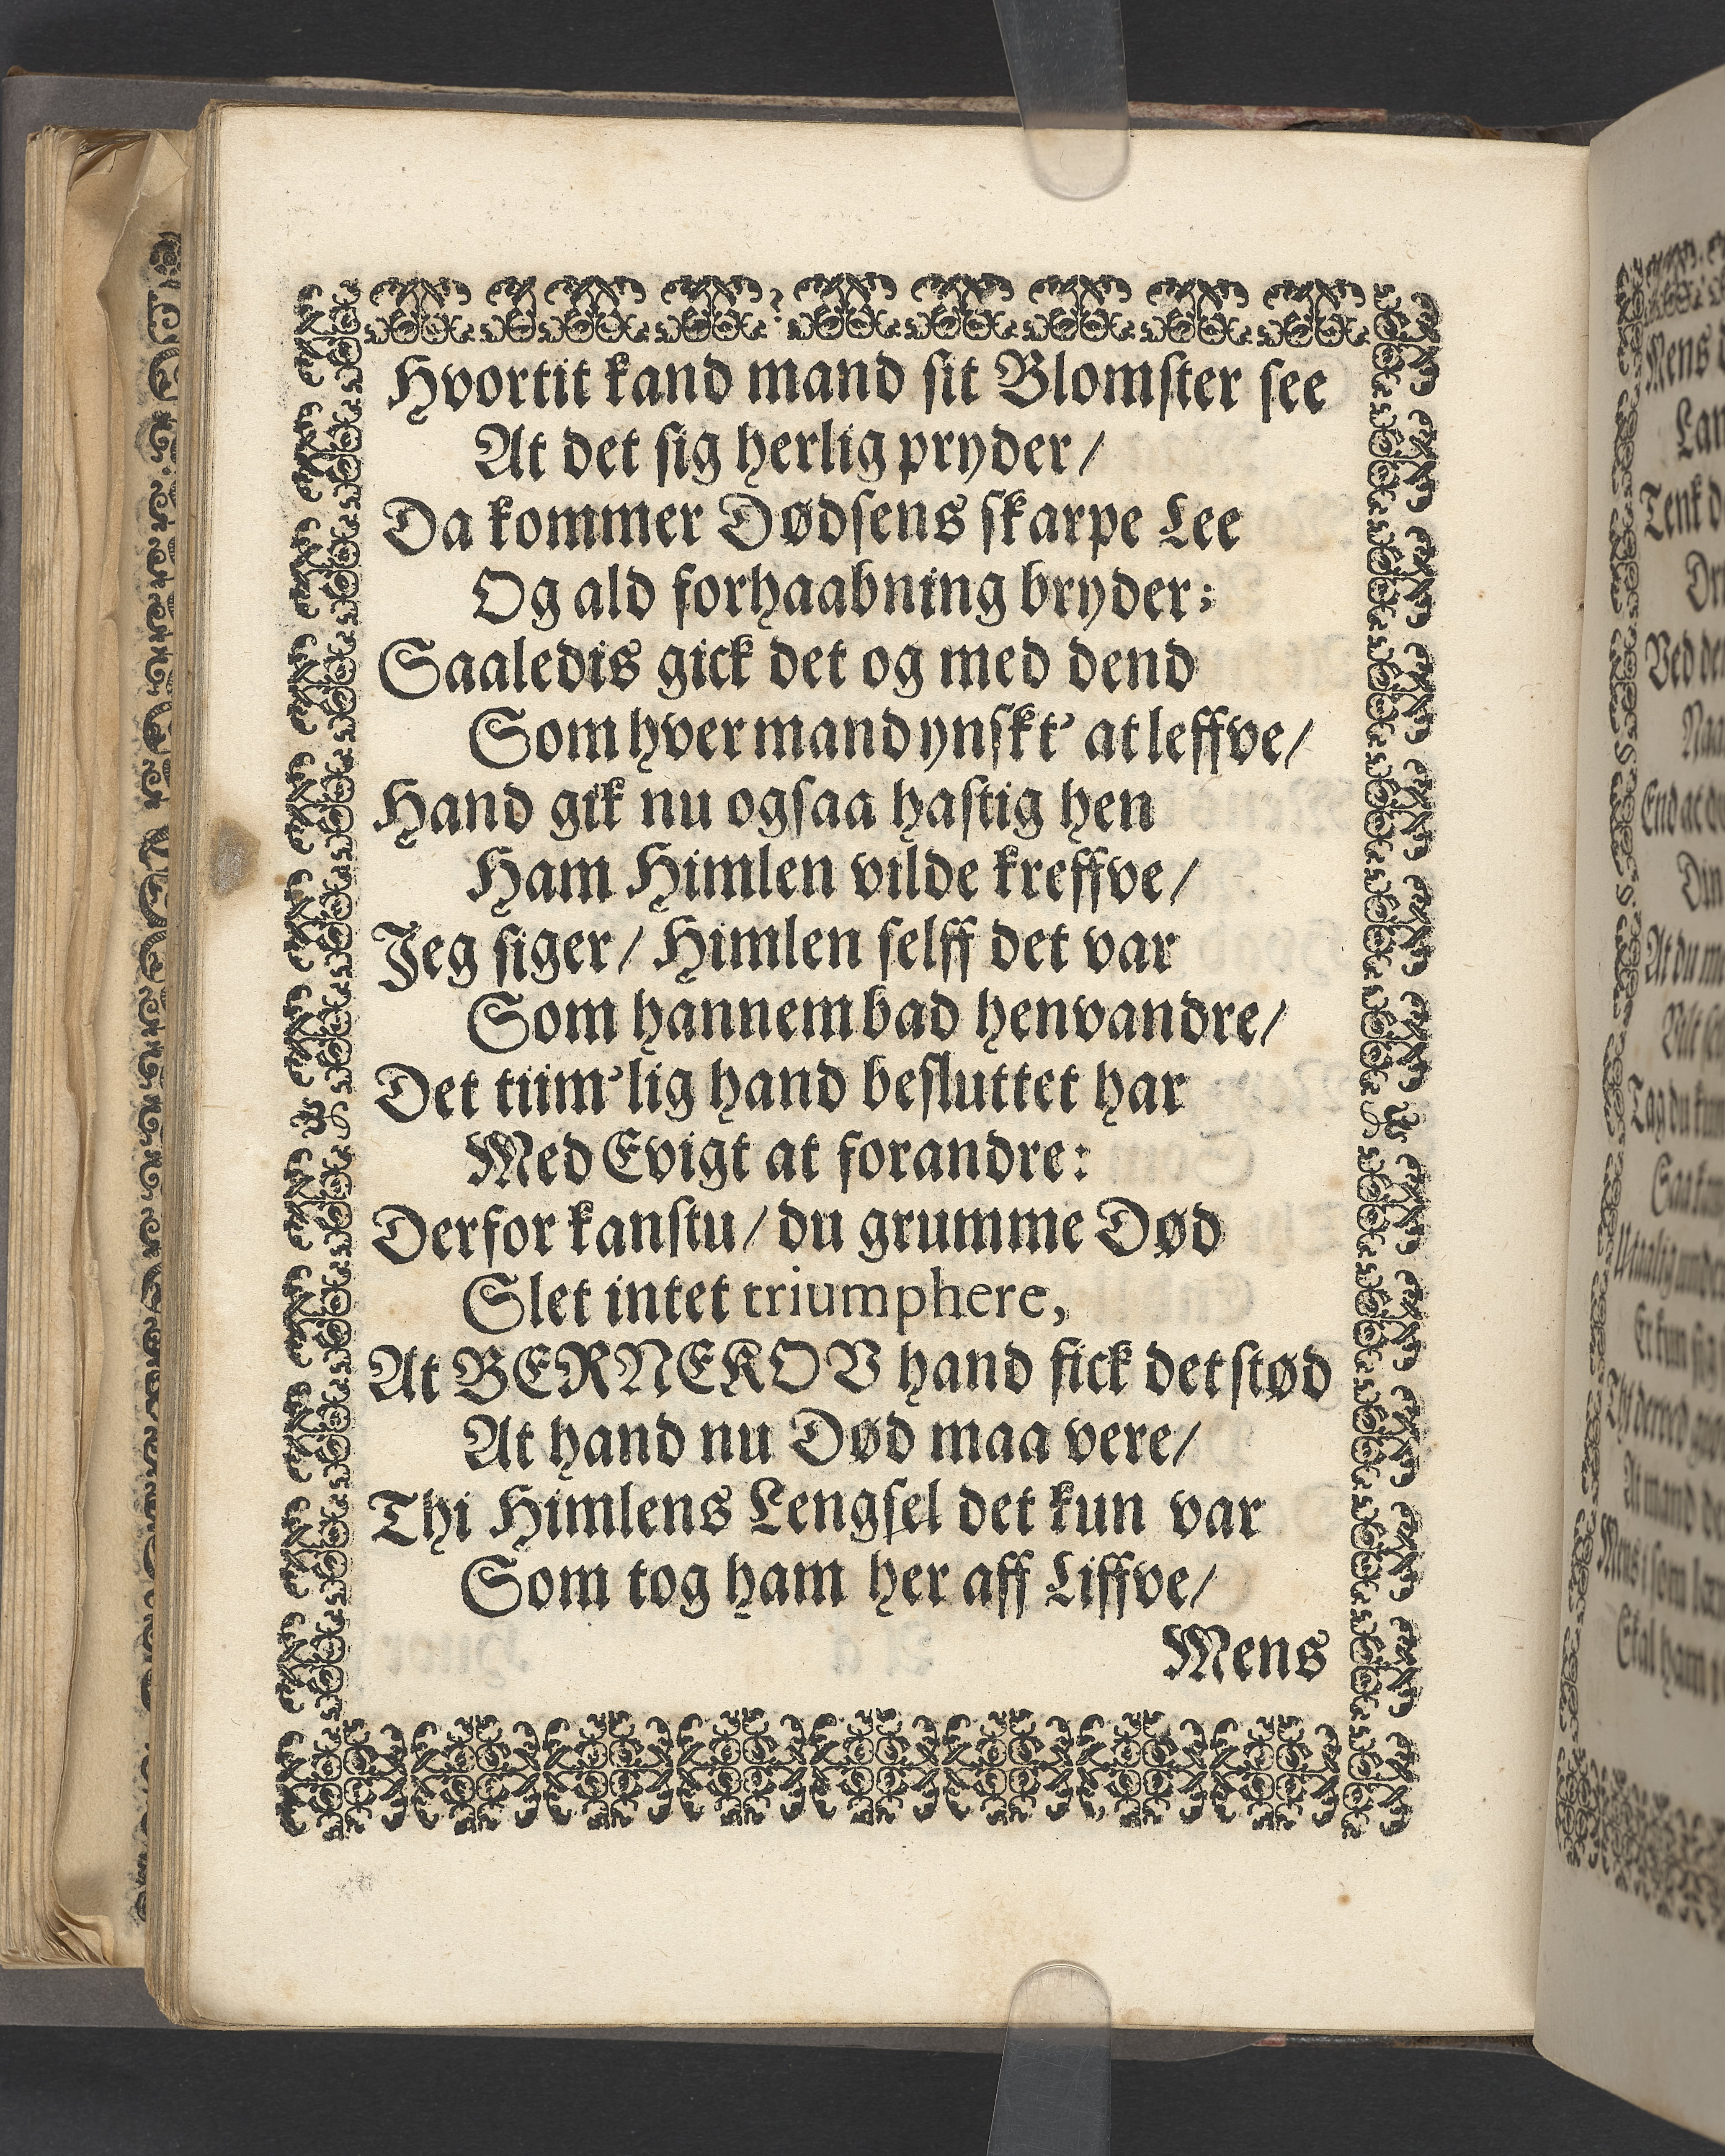 Hvortit kand mand sit Blomster see
At det sig herlig pryder/
Da kommer Dødsens skarpe Lee
Og ald forhaabning bryder:
Saaledis gick det og med dend
Som hver mand ynskt' at leffve/
Hand gik nu ogsaa hastig hen
Ham Himlen vilde kreffve/
Jeg siger/ Himlen selff det var
Som hannem bad henvandre/
Det tiim'lig hand besluttet har
Med Evigt at forandre:
Derfor kanstu/ du grumme Død
Slet intet triumphere,
At BERNEKOV hand fick det stød
At hand nu Død maa vere/
Thi Himlens Lengsel det kun var
Som tog ham her aff Liffve/
Mens